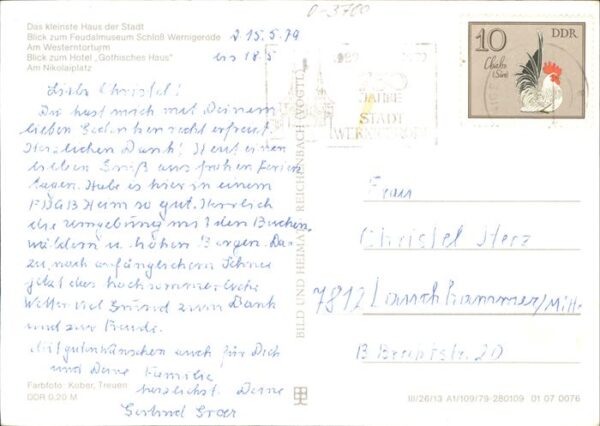 Das kleinste Haus der Stadt
Blick zum Feudalmuseum Schloß Wernigerode
Am Westerntorturm
Blick zum Hotel „Gothisches Haus"
Am Nikolaiplatz
0-3700
d 15.5.79
bis 18.5
10 DDR
JAHRE
STADT
WERNIGERODE
Liebe Christel!
Du hast mich mit Deinem
lieben Gedenken recht erfreut.
Herzlichen Dank! Heut einen
lieben Gruß aus frohen Ferien
tagen. Habe es hier in einem
FDGB Heim so gut. Herrlich
die Umgebung mit den Buchen
wäldern u. hohen Bergen. Da
zu, nach anfänglichem Schnee
jetzt das hochsommerliche
Wetter viel Grund zum Dank
und zur Freude.
Mit guten Wünschen auch für Dich
und Deine Familie
herzlichst Deine
Gertrud
BILD UND HEIMAT REICHENBACH (VOGTL)
Frau
Christel Herz
7812 Lauchhammer/Mitte
B. Brechtstr. 20
Farbfoto: Kober, Treuen
DDR 0,20 M
III/26/13 A1/109/79-280109 01 07 0076